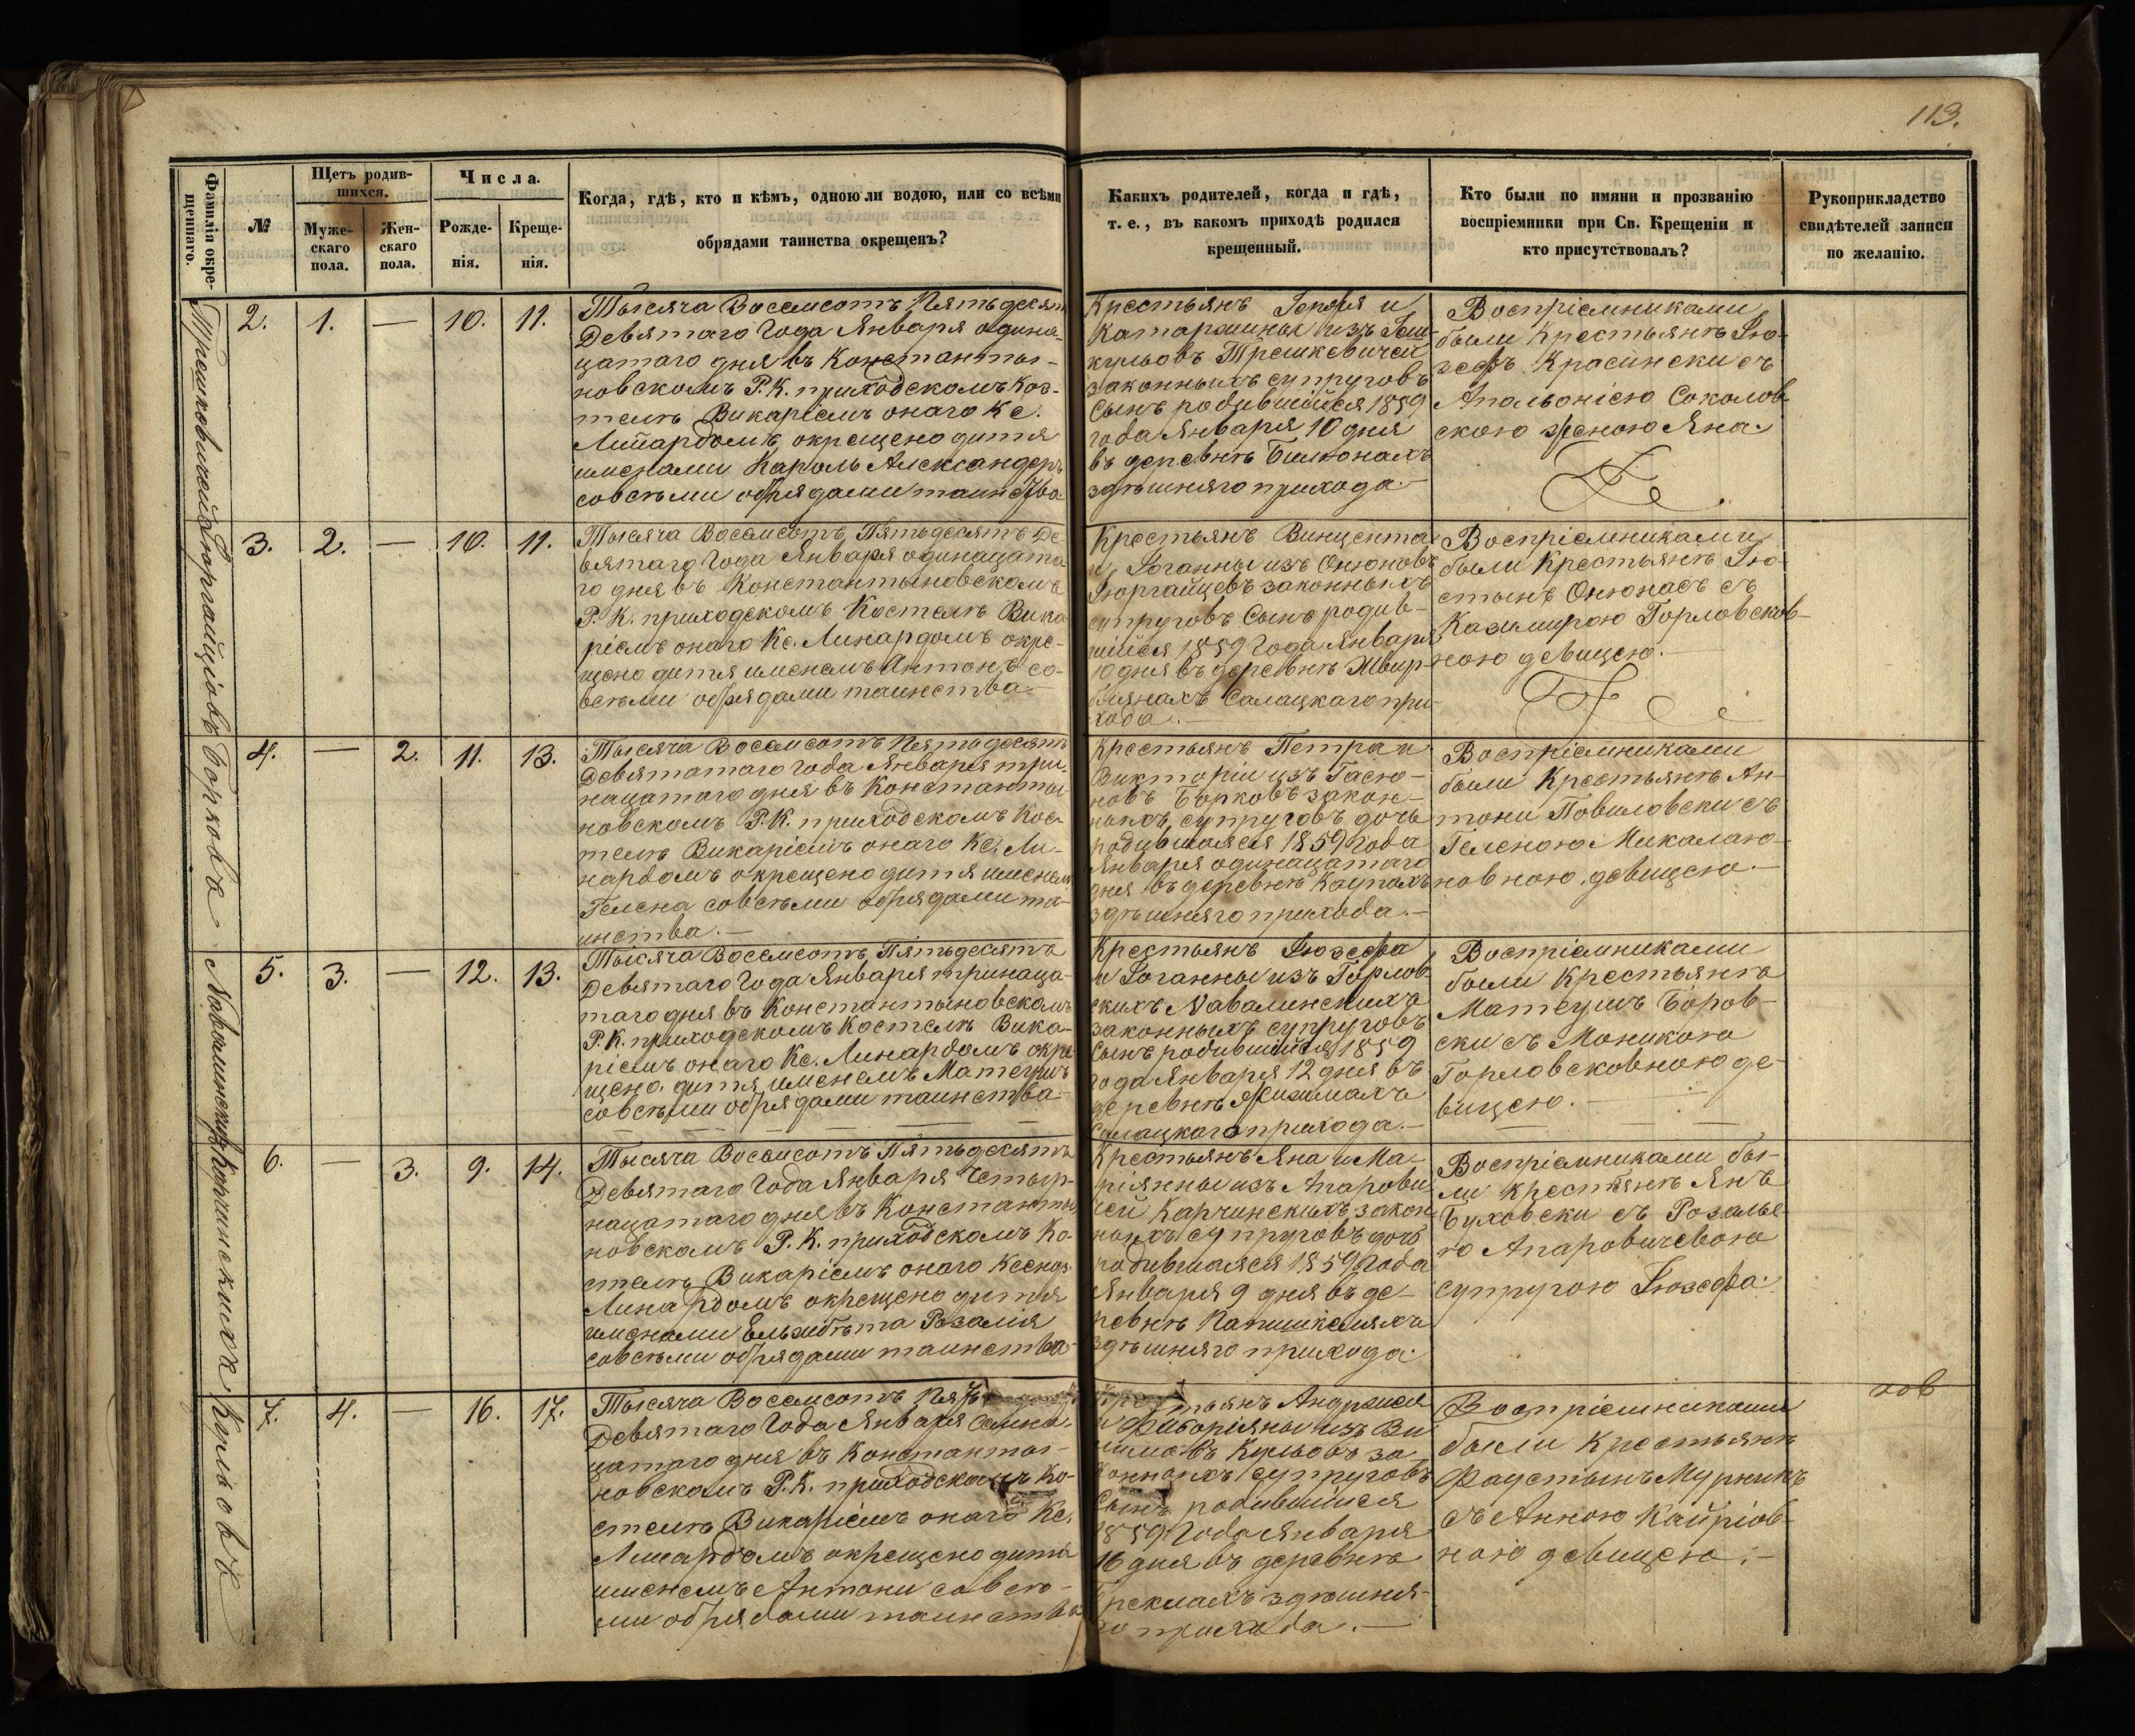 113.
Фамилія окре-
щеннаго.
№
Щетъ родив-
шихся.
Муже-
скаго
пола.
Жен-
скаго
пола.
Числа.
Рожде-
нія.
Креще-
нія.
Когда, гдѣ, кто и кѣмъ, одною ли водою, или со всѣми
обрядами таинства окрещенъ?
Какихъ родителей, когда и гдѣ,
т. е., въ какомъ приходѣ родился
крещенный.
Кто были по имяни и прозванію
воспріемники при Св. Крещеніи и
кто присутствовалъ?
Рукоприкладство
свидѣтелей записи
по желанію.
2.
1.
—
10.
11.
Тысяча Восемсотъ Пятьдесят
Девятаго Года Января одина-
цатаго дня въ Константы-
новскомъ Р. К. приходскомъ Кос-
телѣ Викаріемъ онаго Кс.
Линардомъ окрещено дитя
именами Кароль Александеръ
совсѣми обрядами таинства
Крестьянъ
Катаржины изъ
Трешкевичей
законныхъ супруговъ
Сынъ родившійся 1859
года Января 10 дня
въ деревнѣ
здѣшняго прихода.—
Воспріемниками
были Крестьянъ Ію-
зефъ Красински съ
Апольоніею Соколов-
скою женою Яна.
3.
2.
—
10.
11.
Тысяча Восемсотъ Пятьдесятъ Де-
вятаго Года Января одинацата-
го дня въ Константыновскомъ
Р. К. приходскомъ Костелѣ Вика-
ріемъ онаго Кс. Линардомъ окре-
щено дитя именемъ Антонъ со-
всѣми обрядами таинства.—
Крестьянъ Винцента
и Іоганны изъ Онюновъ
Іюргайцевъ законныхъ
супруговъ Сынъ родив-
шійся 1859 Года Января
10 дня въ деревнѣ Жвир-
Салацкаго при-
хода.—
Воспріемниками
были Крестьянъ Ію-
стынъ Онюнасъ съ
Казимирою Горловсков-
ною девицею.—
4.
—
2.
11.
13.
Тысяча Восемсотъ Пятьдесятъ
Девятатаго Года Января три-
нацатаго дня въ Константы-
новскомъ Р. К. приходскомъ Кос-
телѣ Викаріемъ онаго Кс. Ли-
нардомъ окрещено дитя именем
Гелена совсѣми обрядами та-
инства.—
Крестьянъ Петра и
Викторіи изъ Гасю-
новъ Борковъ закон-
ныхъ супруговъ дочь
родившаяся 1859 Года
Января одинацатаго
дня въ деревнѣ
здѣшняго прихода.—
Воспріемниками
были Крестьянъ Ан-
тони Повиловски съ
Геленою Микалаю-
новною девицею.—
5.
3.
—
12.
13.
Тысяча Восемсотъ Пятьдесятъ
Девятаго Года Января тринаца-
таго дня въ Константыновскомъ
Р. К. приходскомъ Костелѣ Вика-
ріемъ онаго Кс. Линардомъ окре-
щено дитя именемъ Матеушъ
совсѣми обрядами таинства
Крестьянъ Іюзефа
и Іоганны изъ Горлов-
скихъ Навалинскихъ
законныхъ супруговъ
Сынъ родившийся 1859
года Января 12 дня въ
деревнѣ
Салацкаго прихода.—
Воспріемниками
были Крестьянъ
Матеушъ Боров-
ски съ Моникою
Горловсковною де-
вицею.
6.
—
3.
9.
14.
Тысяча Восемсотъ Пятьдесятъ
Девятаго Года Января Четыр-
нацатаго дня въ Константы-
новскомъ Р. К. приходскомъ Ко-
стелѣ Викаріемъ онаго Ксендз.
Линардомъ окрещено дитя
именами Ельжбѣта Розалія
совсѣми обрядами таинства
Крестьянъ Яна и Ма-
ріянны изъ Апарови-
чей Карчинскихъ закон-
ныхъ супруговъ дочь
родившаяся 1859 Года
Января 9 дня въ де-
ревнѣ
здѣшняго прихода.
Воспріемниками бы-
ли крестьянъ Янъ
Буховски съ Розалье-
ю Апаровичевою
супругою Іюзефа.
7.
4.
—
16.
17.
Тысяча Восемсотъ
Девятаго Года Января Семна-
цатаго дня въ Константы-
новскомъ Р. К. приходскомъ Ко-
стелѣ Викаріемъ онаго Кс.
Линардомъ окрещено дитя
именемъ Антони совсѣ-
ми обрядами таинства
Андржея
и
законныхъ супруговъ
Сынъ родившійся
1859 Года Января
16 дня въ деревнѣ
здѣшня-
го прихода.—
Воспріемниками
были Крестьянъ
Фаустынъ
съ Анною
ною девицею.—